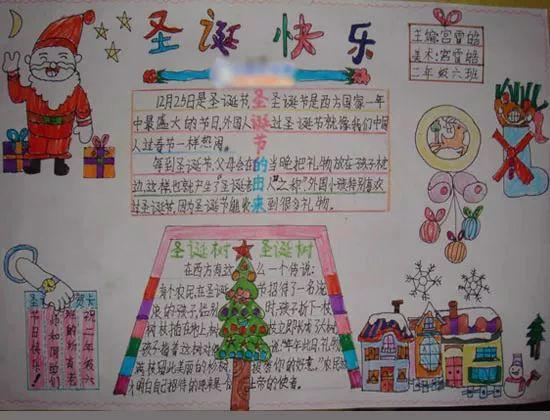 圣诞快乐
主编:宫雪皓
美术:宫雪皓
二年级六班
圣诞节的由来
12月25日是圣诞节,圣诞节是西方国家一年
中最盛大的节日,外国人过圣诞节就像我们中国
人过春节一样热闹。
每到圣诞节,父母会在当晚把礼物放在孩子材
边,这样也就产生了"圣诞老人"之称"外国小孩特别喜欢
过圣诞节,因为圣诞节能收到很多礼物。
圣诞树 圣诞树
在西方有这么一个传说:
有个农民在圣诞节招待了一名流
浪的孩子,临别时,孩子折下一枝
树枝插在地上,树枝立即长成大树。
孩子指着这树对
说:"年年此日,礼物
满枝,留此美丽的树
报答你的好意。"农民这
明白自己招待的
上帝的使者。
圣诞贺卡
祝二年级六
班的所有老
师和同学们
节日快乐!